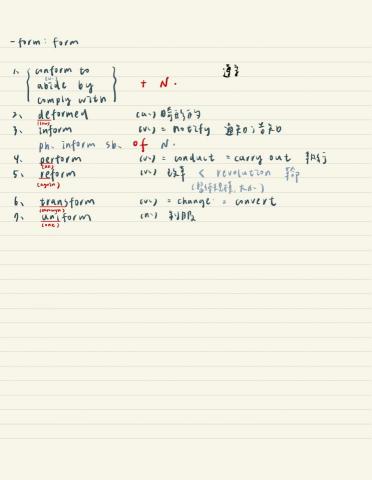 -form: form
1、 conform to 遵守
(v.)
abide by + N.
comply with
2、 deformed (a.) 畸形的
(down)
3、 inform (v.) = notify 通知；告知
ph. inform sb. of N.
4、 perform (v.) = conduct = carry out 執行
5、 reform (v.) 改革 < revolution 革命
(again)
6、 transform (v.) = change = convert
(through)
7、 uniform (n.) 制服
(one)